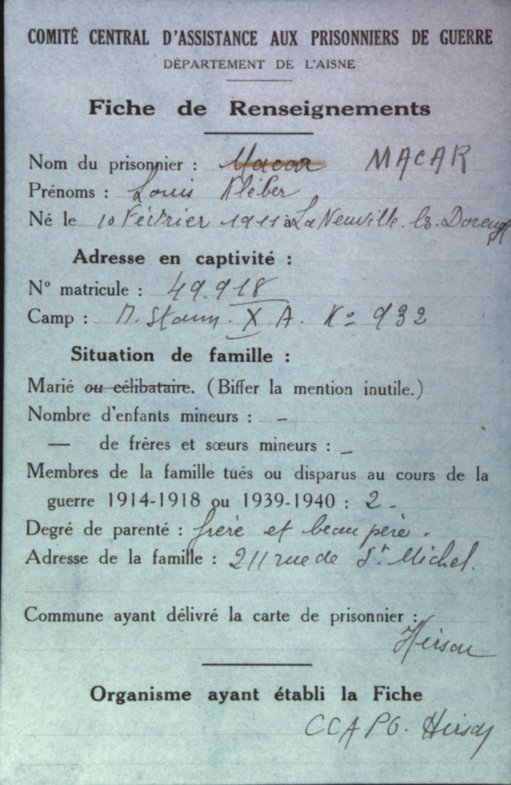 COMITÉ CENTRAL D'ASSISTANCE AUX PRISONNIERS DE GUERRE
DÉPARTEMENT DE L'AISNE
Fiche de Renseignements
Nom du prisonnier : Macar MACAR
Prénoms : Louis Kléber
Né le 10 Février 1911 à La Neuville-les-Dorengt
Adresse en captivité :
N° matricule : 49.918
Camp : M. Stamm. X A. K° 932
Situation de famille :
Marié ou célibataire. (Biffer la mention inutile.)
Nombre d'enfants mineurs : -
— de frères et sœurs mineurs : -
Membres de la famille tués ou disparus au cours de la
guerre 1914-1918 ou 1939-1940 : 2 -
Degré de parenté : frère et beau père.
Adresse de la famille : 211 rue de St Michel.
Commune ayant délivré la carte de prisonnier :
Hirson
Organisme ayant établi la Fiche
CCAPG. Hirson